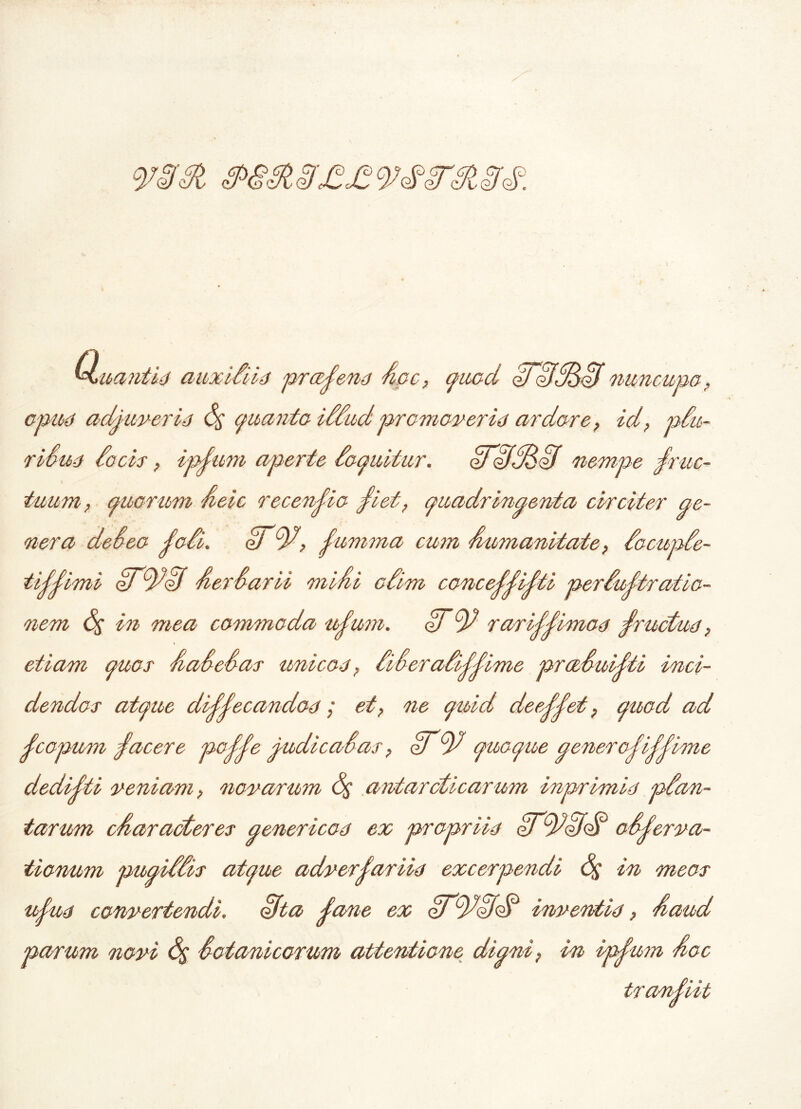 VIR PERILLVSTRIS.
Quantis auxiliis præſens hoc, quod TIBI nuncupo,
opus adjuveris & quanto illud promoveris ardore, id, plu-
ribus locis, ipſum aperte loquitur. TIBI nempe fruc-
tuum, quorum heic recenſio fiet, quadringenta circiter ge-
nera debeo ſoli. TV, ſumma cum humanitate, locuple-
tiſſimi TVI herbarii mihi olim conceſſiſti perluſtratio-
nem & in mea commoda uſum. TV rariſſimos fructus,
etiam quos habebas unicos, liberaliſſime præbuiſti inci-
dendos atque diſſecandos; et, ne quid deeſſet, quod ad
ſcopum facere poſſe judicabas, TV quoque generoſiſſime
dediſti veniam, novarum & antarcticarum inprimis plan-
tarum characteres genericos ex propriis TVIS obſerva-
tionum pugillis atque adverſariis excerpendi & in meos
uſus convertendi. Ita ſane ex TVIS inventis, haud
parum novi & botanicorum attentione digni, in ipſum hoc
tranſiit